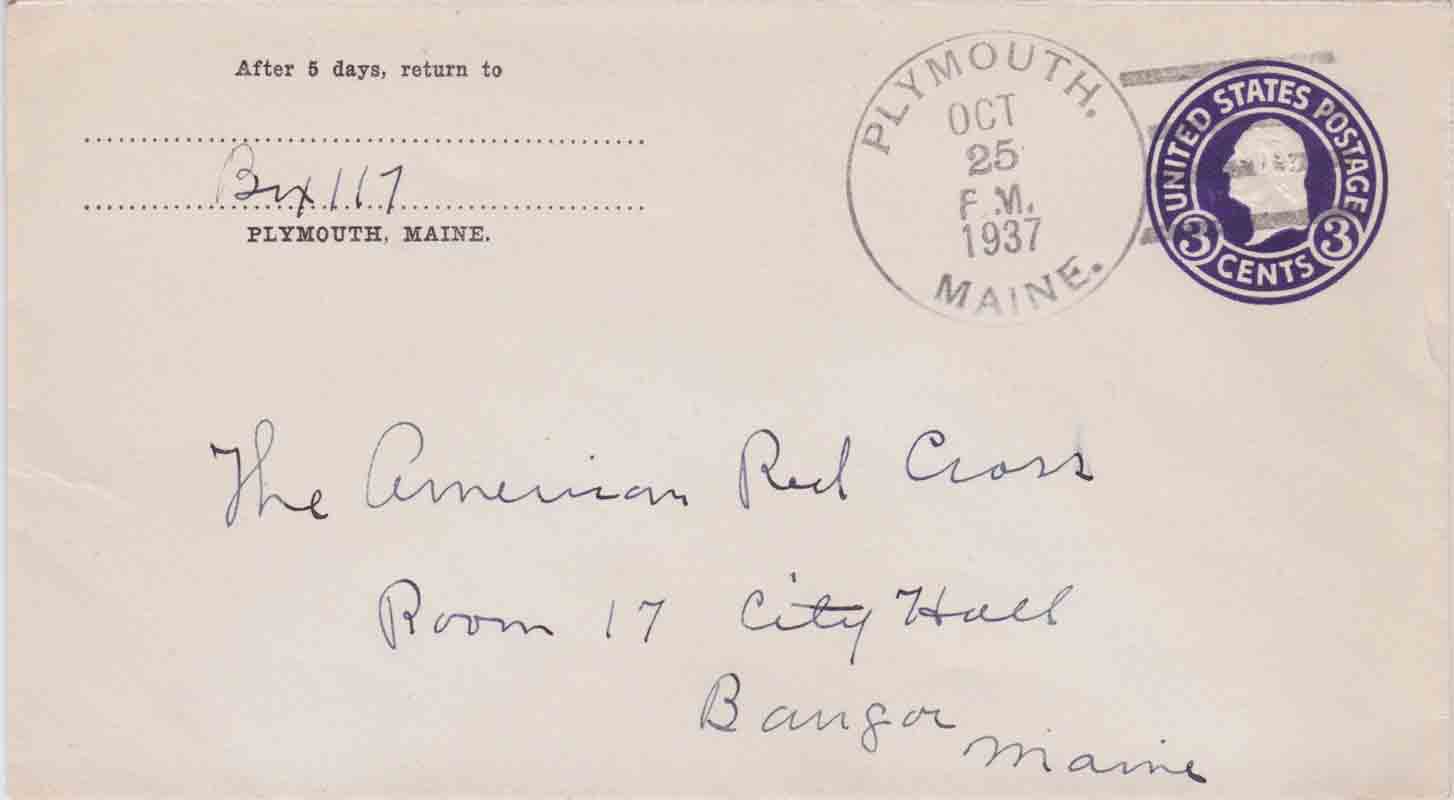 After 5 days, return to
Box 117
PLYMOUTH, MAINE.
PLYMOUTH.
OCT
25
P.M.
1937
MAINE.
UNITED STATES POSTAGE
3 3
CENTS
The American Red Cross
Room 17 City Hall
Bangor
Maine